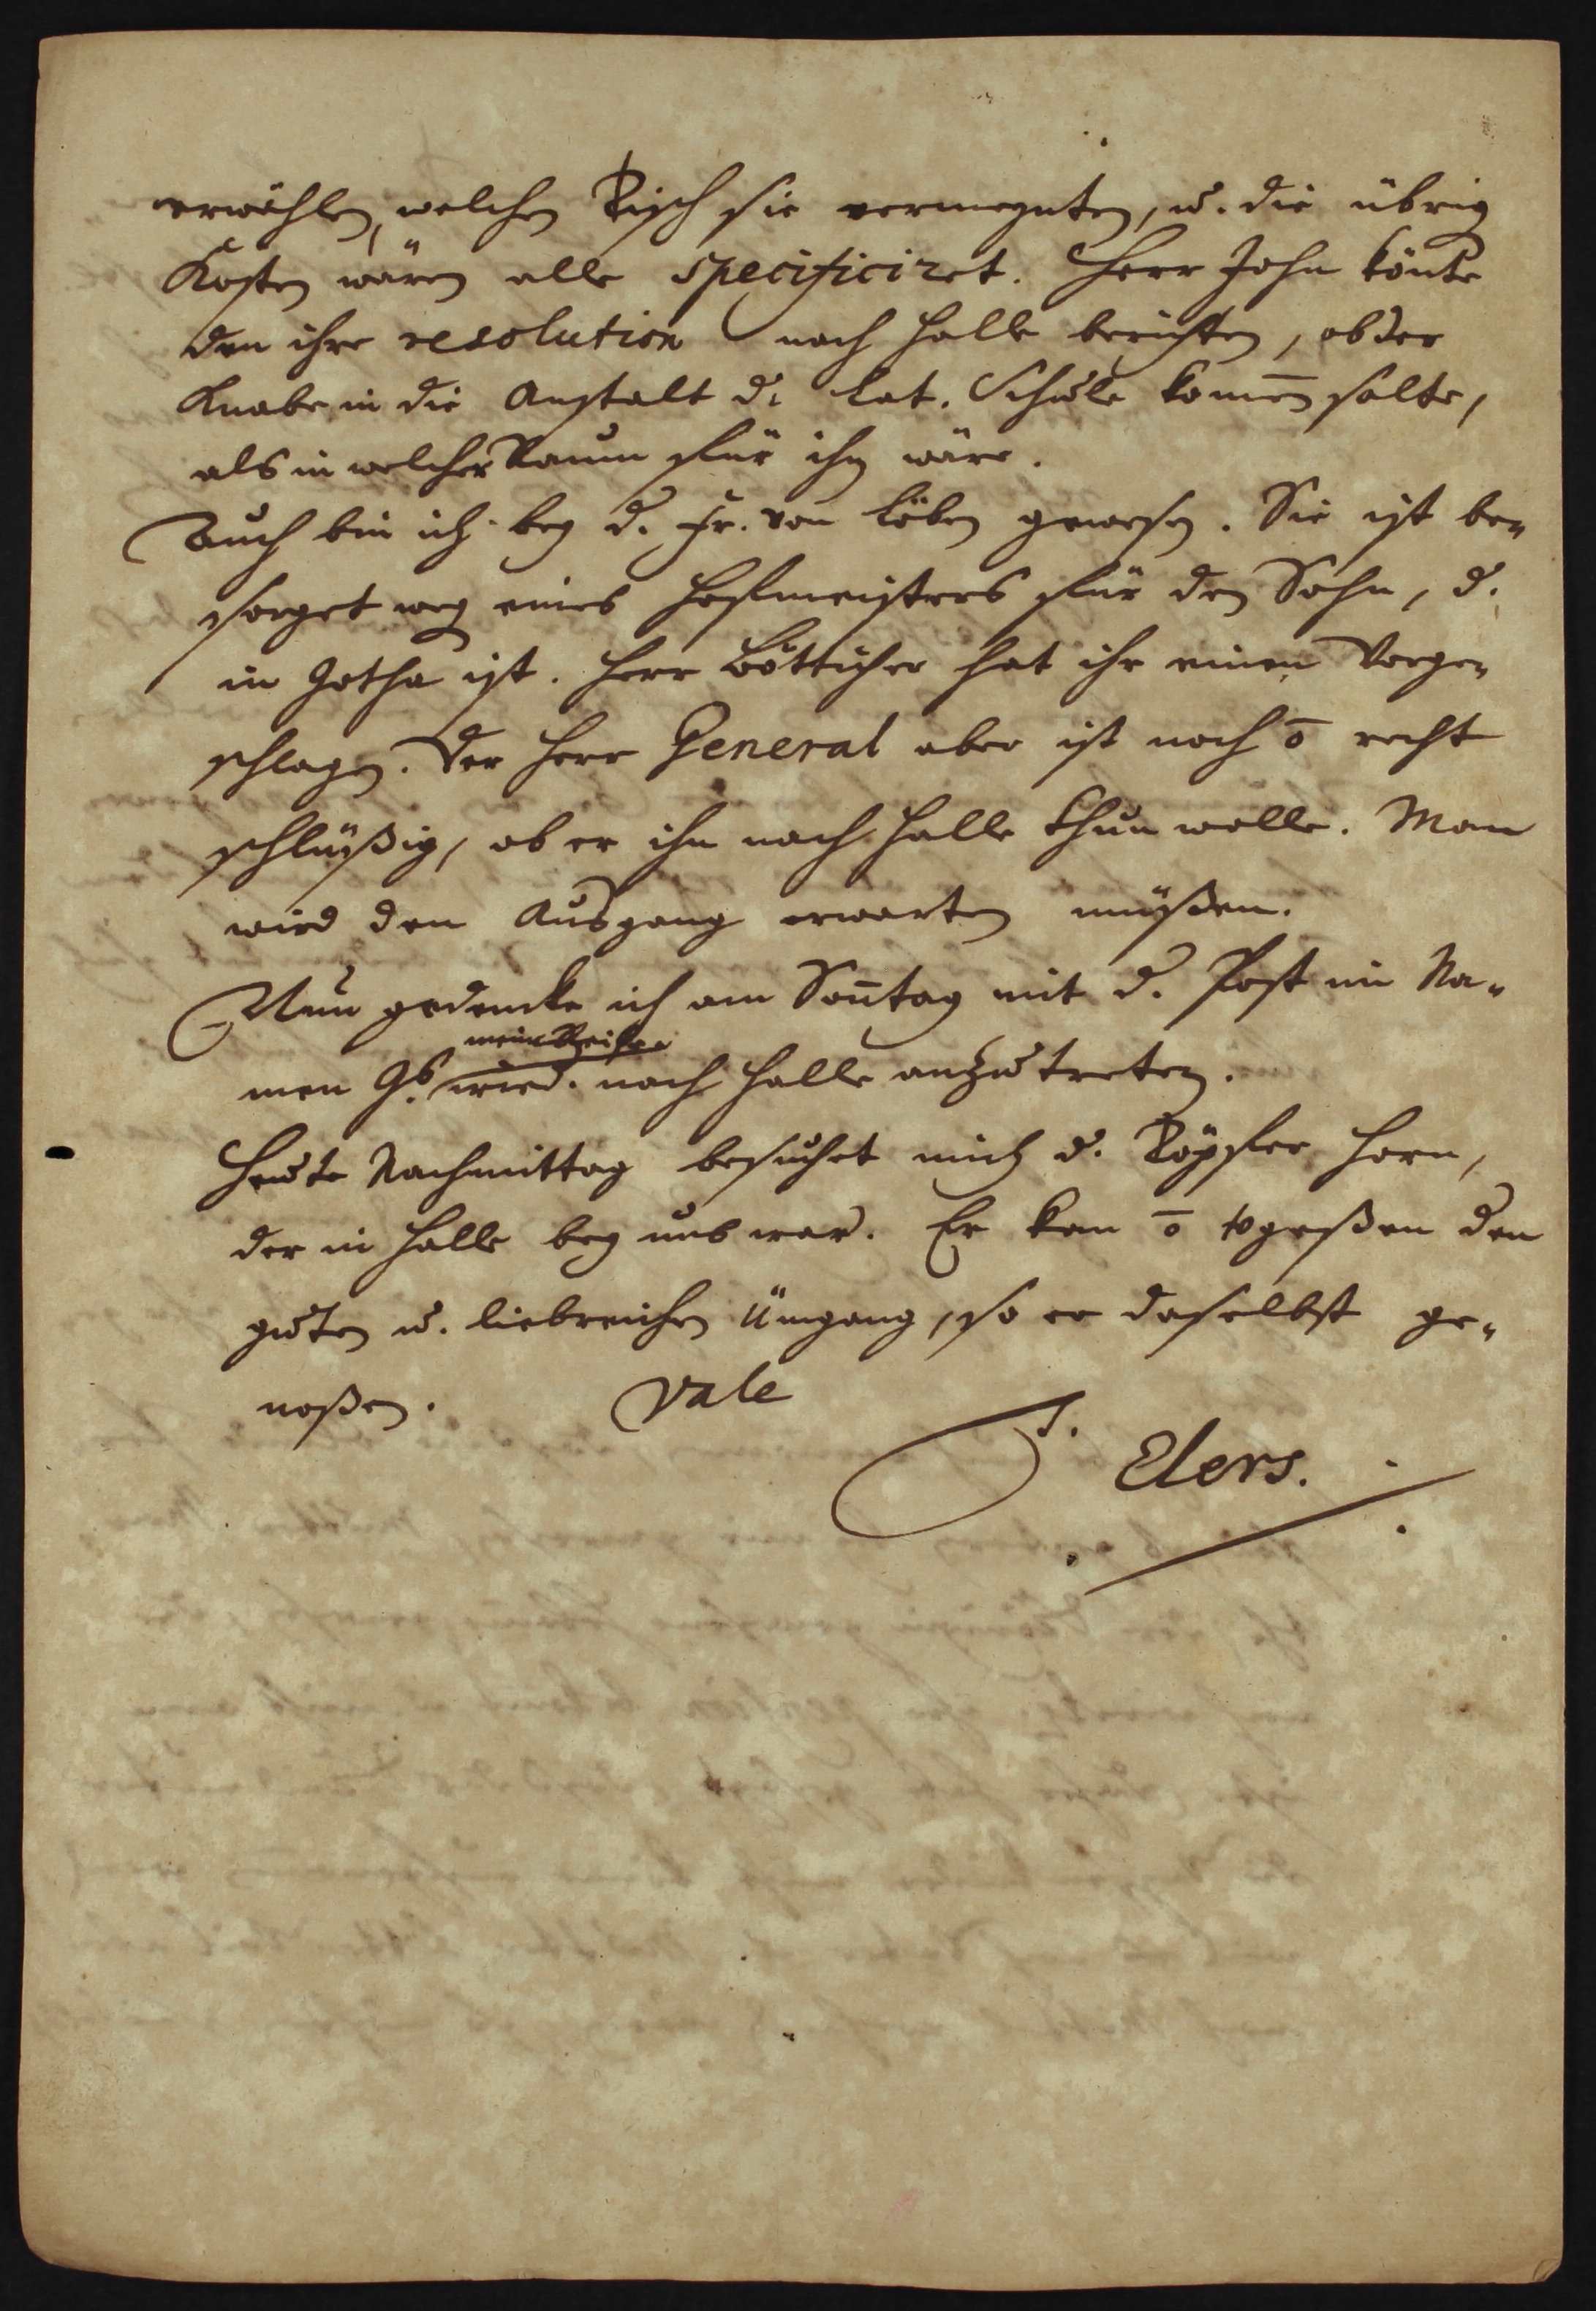 erwählen, welchen Tisch sie vermeynten, u. die übrig
Kosten wären alle specificiret. Herr John könte
den ihre resolution nach Halle berichten, ob der
Knabe in die Anstalt d. Lat. Schule kom̄en solte,
als in welcher Raum für ihn wäre.
Auch bin ich bey d. Fr. von Löben gewesen. Sie ist be-
sorget weg eines Hofmeisters für den Sohn, d.
in Gotha ist. Herr Bötticher hat ihr einen vorge-
schlagen. Der Herr General aber ist noch ō recht
schlüßig, ob er ihn nach Halle thun wolle. Man
wird den Ausgang erwarten müßen.
Nun gedencke ich am Son̄tag mit d. Post im Na-
meine Reise
men Gs. wied. nach Halle anzutreten.
Heute Nachmittag besuchet mich d. Töpfer Horn,
der in Halle bey uns war. Er kan ō vergeßen den
guten u. liebreichen Umgang, so er daselbst ge-
noßen. Vale
Elers.